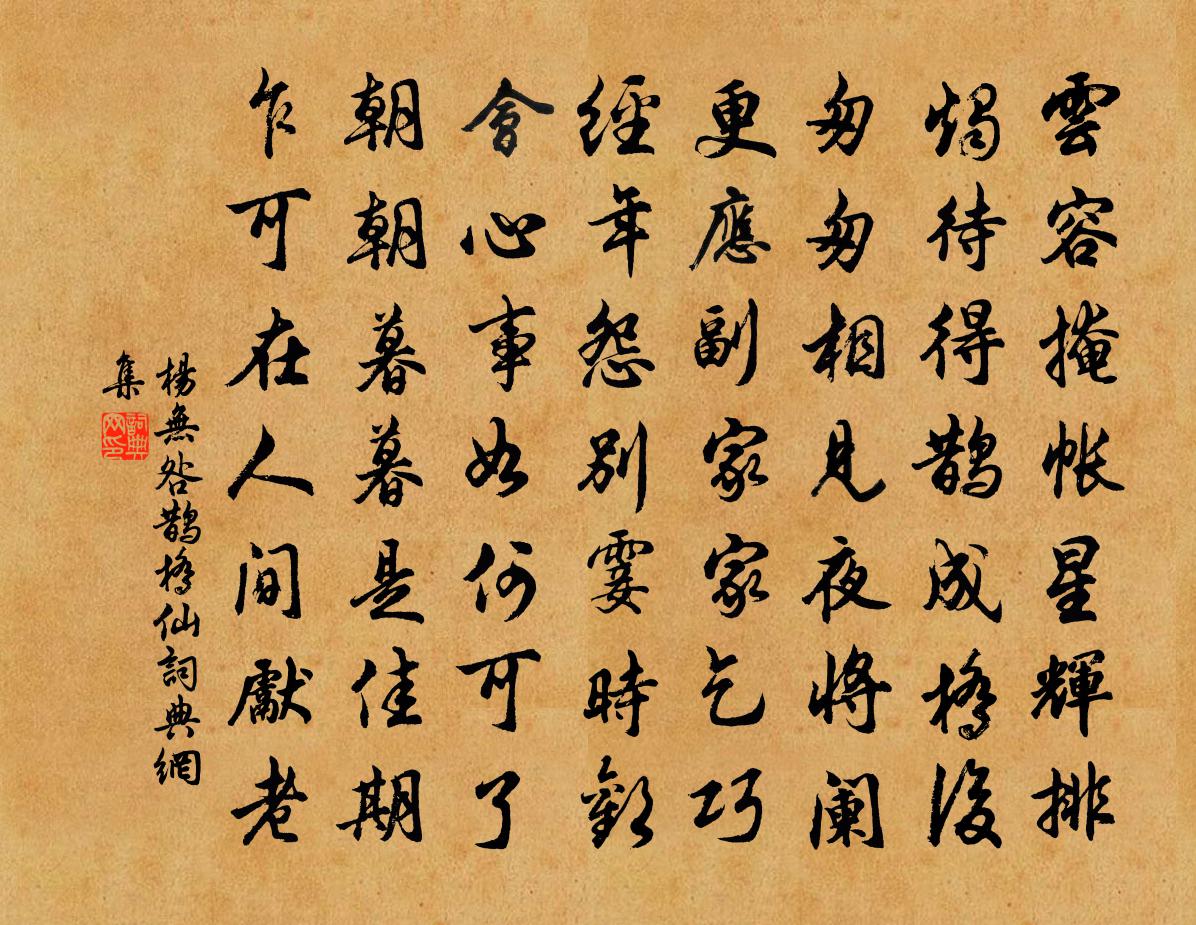 雲容掩帳星輝排
燭待得鵲成橋後
匆匆相見夜將闌
更應副家家乞巧
經年怨別霎時歡
會心事如何可了
朝朝暮暮是佳期
乍可在人間獻老
楊無咎鵲橋仙詞典網
集
詞典
网印